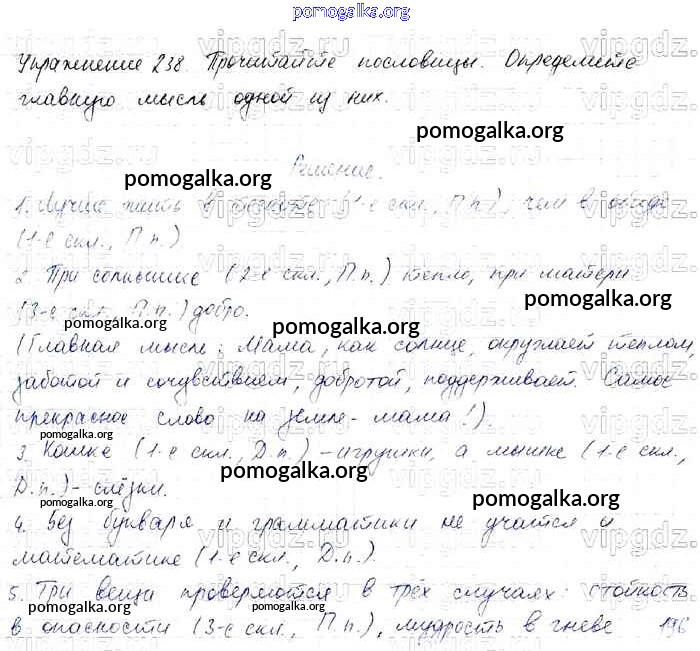 pomogalka.org
Упражнение 238. Прочитайте пословицы. Определите
главную мысль одной из них.
pomogalka.org
Решение.
pomogalka.org
1. Лучше жить в тесноте (1-е скл., П.п.), чем в обиде
(1-е скл., П.п.)
2. При солнышке (2-е скл., П.п.) тепло, при матери
pomogalka.org
(3-е скл., П.п.) добро.
pomogalka.org
pomogalka.org
(Главная мысль: Мама, как солнце, окружает теплом,
заботой и сочувствием, добротой, поддерживает. Самое
прекрасное слово на земле - мама!).
pomogalka.org
3. Кошке (1-е скл., Д.п.) - игрушки, а мышке (1-е скл.,
pomogalka.org
Д.п.) - слёзки.
pomogalka.org
4. Без букваря и грамматики не учатся и
математике (1-е скл., Д.п.).
5. Три вещи проверяются в трёх случаях: стойкость
pomogalka.org
pomogalka.org
в опасности (3-е скл., П.п.), мудрость в гневе 196